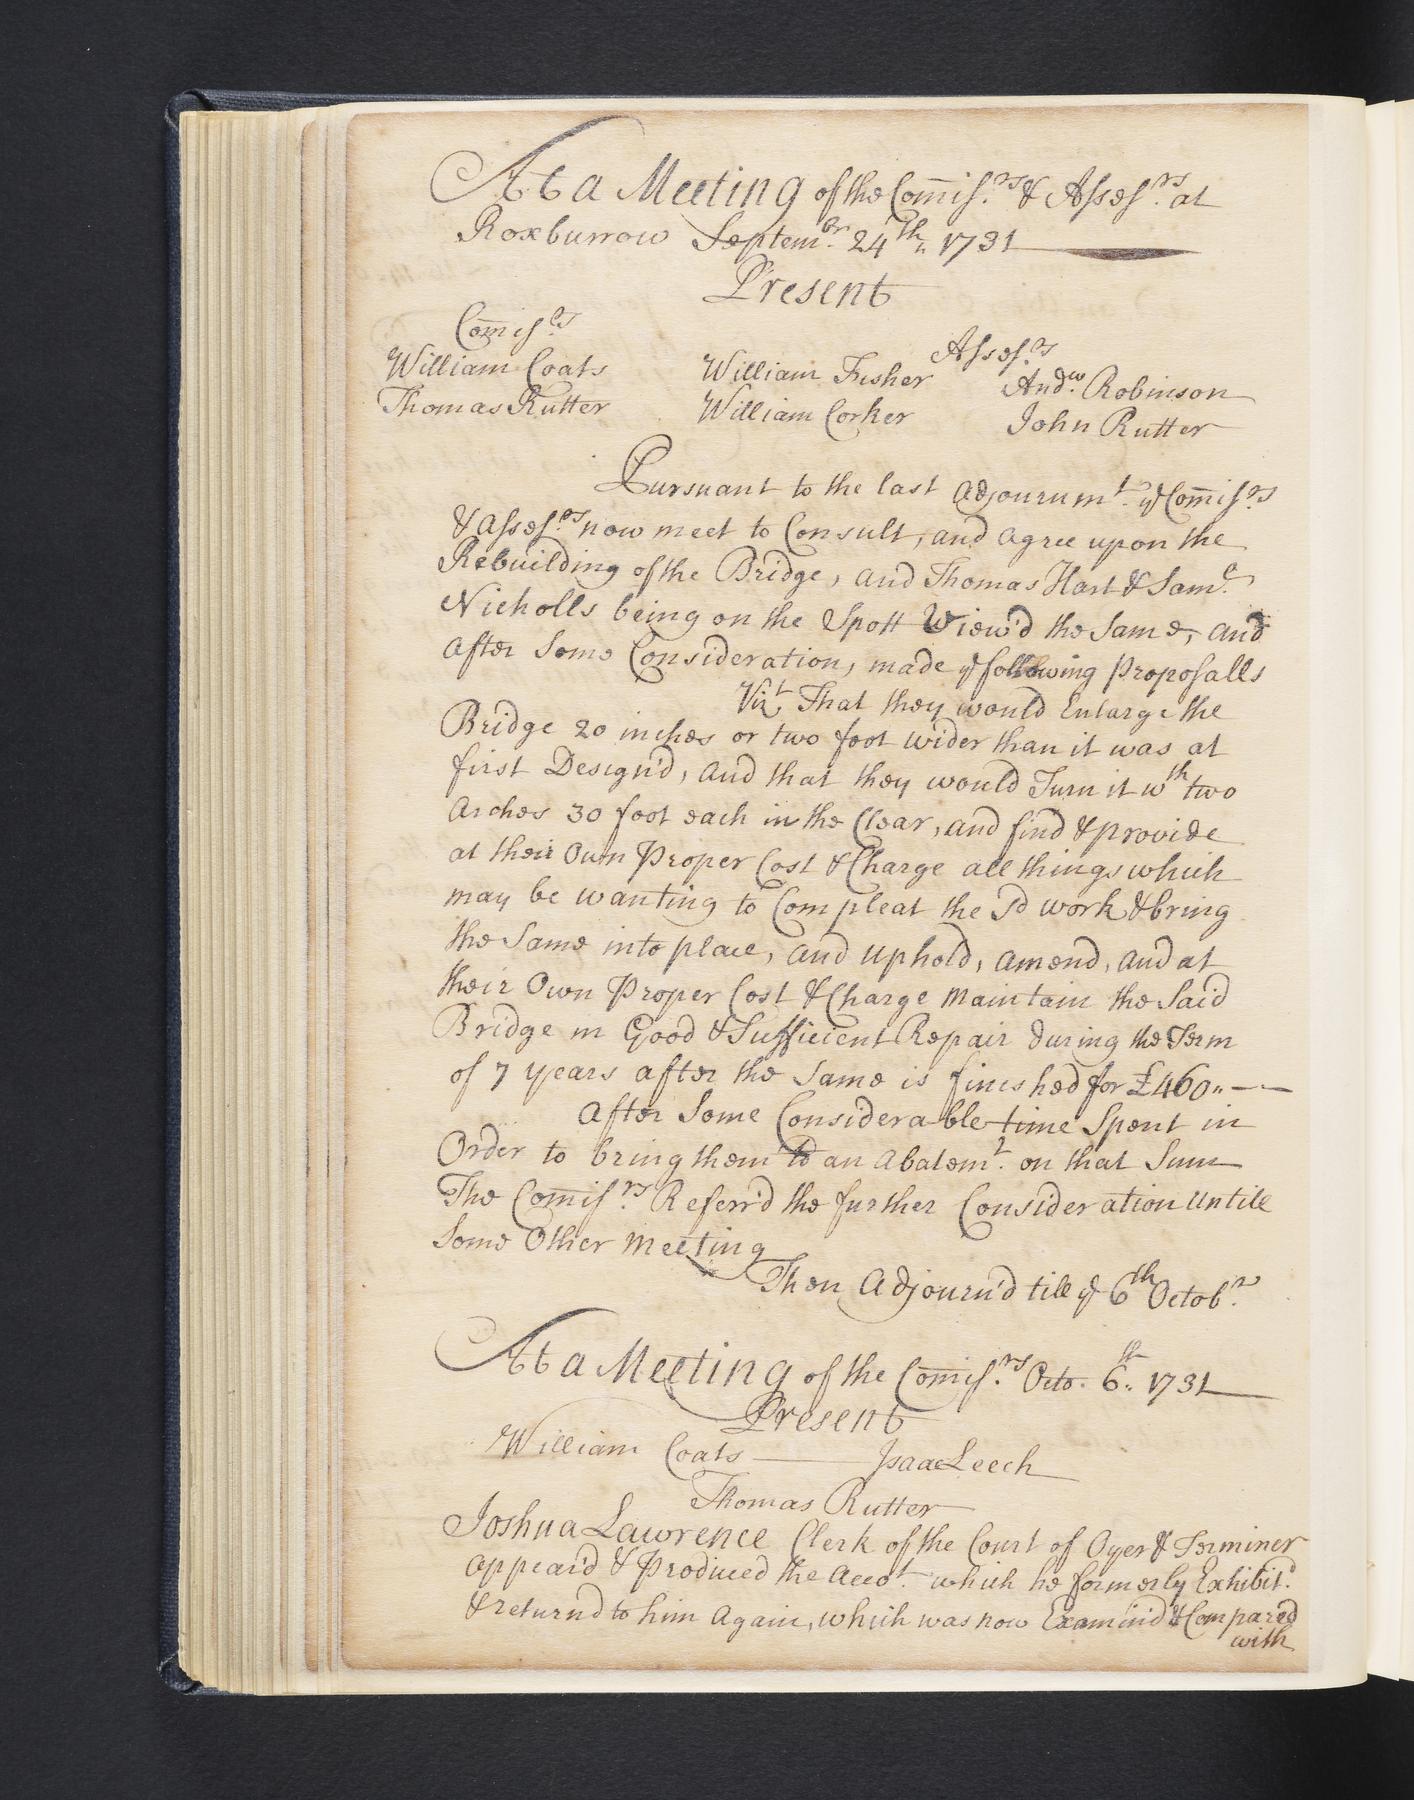 At a Meeting of the Com̄iss.rs & Assess.rs at
Roxburrow Septem.br 24th 1731
Present
Com̄iss.rs
Assess.rs
William Coats William Fisher Andw. Robinson
Thomas Rutter William Corker John Rutter
Pursuant to the last adjournmt. ye Com̄iss.rs
& assess.rs now meet to Consult, and agree upon the
Rebuilding of the Bridge, and Thomas Hart & Saml.
Nicholls being on the Spott View'd the Same, and
after Some Consideration, made ye following proposalls
Vizt. That they would Enlarge the
Bridge 20 inches or two foot wider than it was at
first Design'd, and that they would Turn it wth two
Arches 30 foot each in the Clear, and find & provide
at their Own Proper Cost & Charge all things which
may be wanting to Compleat the sd work & bring
the Same into place, and uphold, amend, and at
their Own Proper Cost & Charge Maintain the Said
Bridge in Good & Sufficient Repair during the Term
of 7 years after the Same is finished for £460"——
After Some Considerable time Spent in
Order to bring them to an abatemt. on that Sum
The Com̄iss.rs Referr'd the further Consideration untill
Some Other Meeting
Then Adjourn'd till ye 6th Octobr.
At a Meeting of the Com̄iss.rs Octo. 6th 1731
Present
William Coats —— Isaac Leech
Thomas Rutter
Joshua Lawrence Clerk of the Court of Oyer & Terminer
appear'd & Produced the Accot. which he formerly Exhibitd.
& return'd to him again, which was now Examin'd & Compared
with